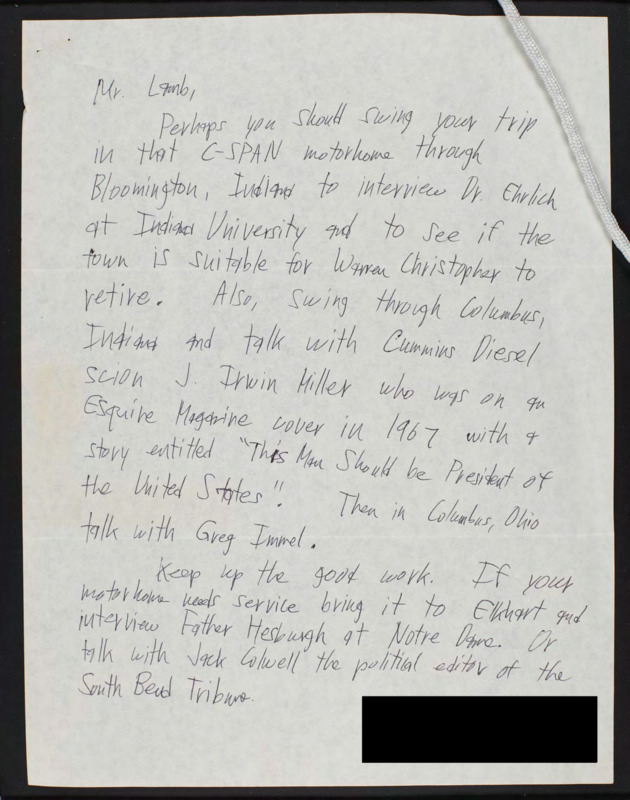 Mr. Lamb,
Perhaps you should swing your trip
in that C-SPAN motorhome through
Bloomington, Indiana to interview Dr. Ehrlich
at Indiana University and to see if the
town is suitable for Warren Christopher to
retire. Also, swing through Columbus,
Indiana and talk with Cummins Diesel
scion J. Irwin Miller who was on an
Esquire Magazine cover in 1967 with a
story entitled "This Man Should be President of
the United States". Then in Columbus, Ohio
talk with Greg Immel.
Keep up the good work. If your
motorhome needs service bring it to Elkhart and
interview Father Hesburgh at Notre Dame. Or
talk with Jack Colwell the political editor of the
South Bend Tribune.